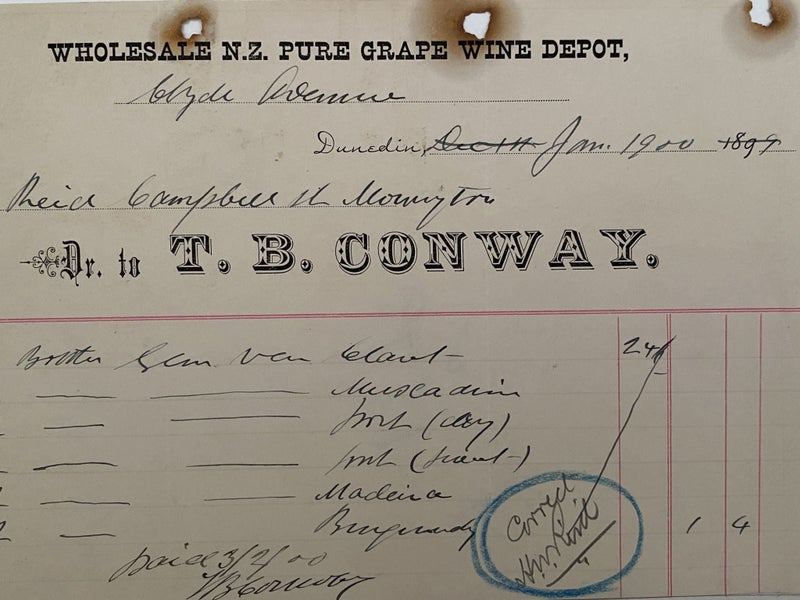 WHOLESALE N.Z. PURE GRAPE WINE DEPOT,
Clyde Avenue
Dunedin, Jan. 1900 1899
Reid Campbell St Mornington
Dr. to T. B. CONWAY.
Bottles Claret 24/
Muscadine
Port (dry)
Port (sweet)
Madeira
Burgundy 1 4
Correct
Paid 3/2/00
TB Conway